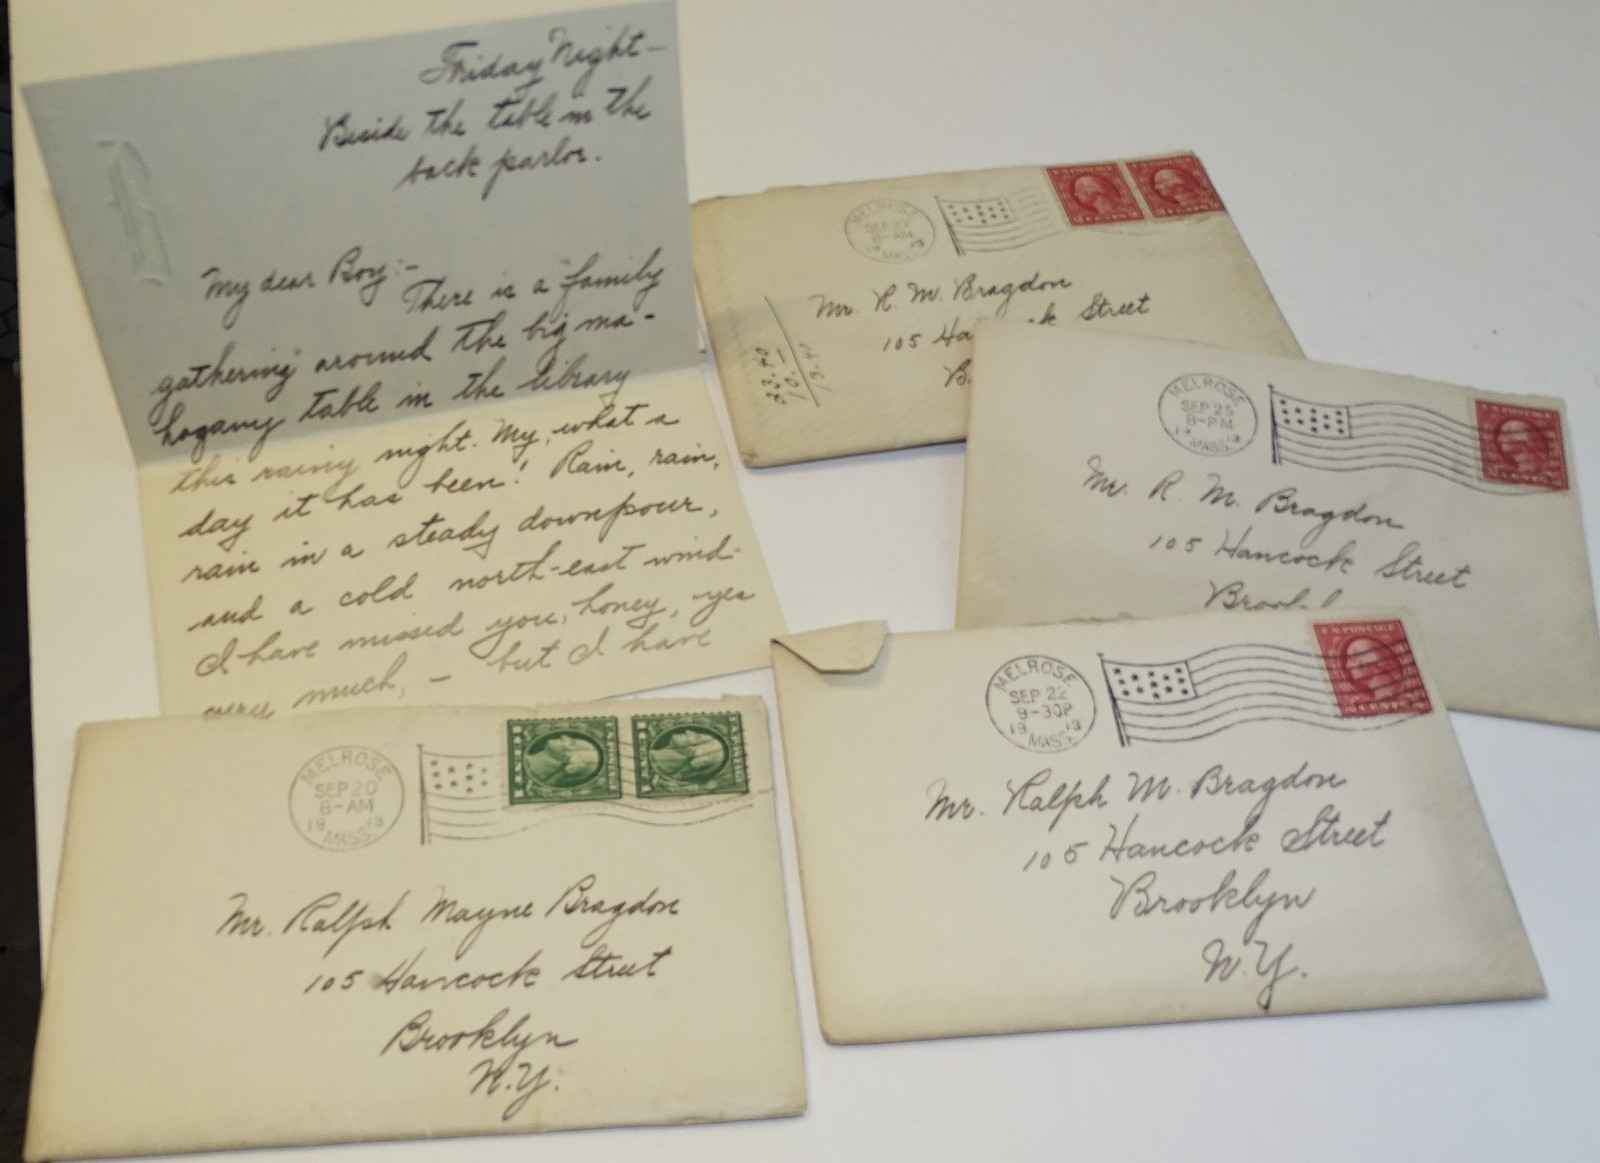 Friday Night—
Beside the table in the
back parlor.
My dear Boy:—
There is a "family
gathering" around the big ma-
hogany table in the library
this rainy night. My, what a
day it has been! Rain, rain,
rain in a steady downpour,
and a cold north-east wind-
I have missed you, honey, yes
very much, — but I have
MELROSE
SEP 27
8-AM
19 13
MASS.
U.S. POSTAGE
U.S. POSTAGE
Mr. R. M. Bragdon
105 Street
23.40
10.
13.40
MELROSE
SEP 25
8-PM
19 13
MASS.
U.S. POSTAGE
Mr. R. M. Bragdon
105 Hancock Street
MELROSE
SEP 22
9-30P
19 13
MASS.
U.S. POSTAGE
Mr. Ralph M. Bragdon
105 Hancock Street
Brooklyn
N.Y.
MELROSE
SEP 20
8-AM
19 13
MASS.
Mr. Ralph Mayne Bragdon
105 Hancock Street
Brooklyn
N.Y.